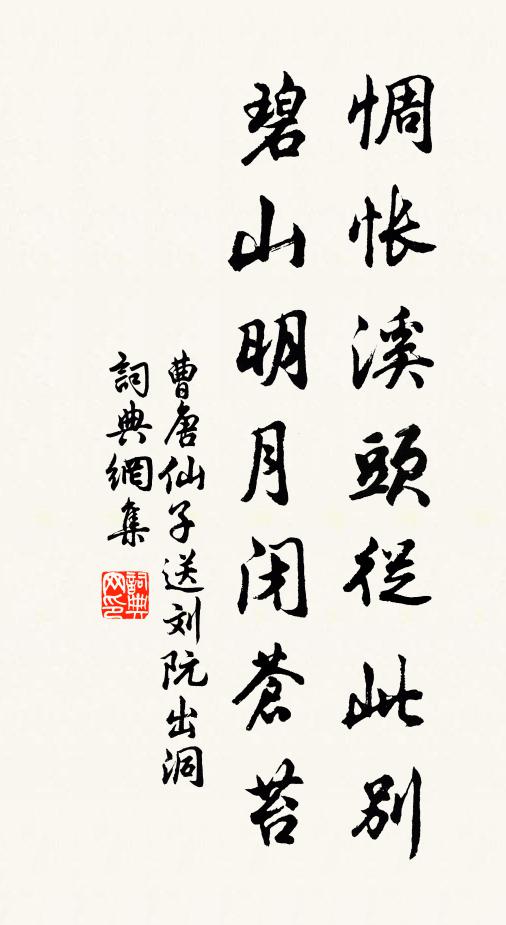 惆怅溪頭從此别
碧山明月闭蒼苔
曹唐仙子送刘阮出洞
詞典網集
詞典网印